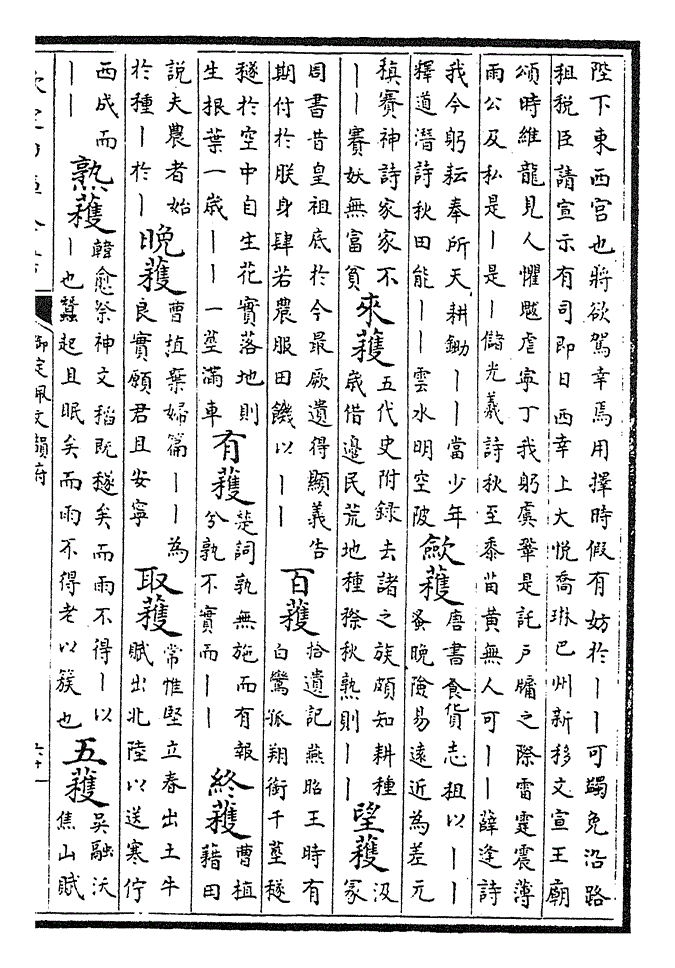 陛下東西宮也將欲駕幸焉用擇時假有妨於丨丨可蠲免沿路
租税臣請宣示有司即日西幸上大悅喬琳巴州新移文宣王廟
頌時維龍見人懼魃虐寧丁我躬虞鞏是託戶牖之際雷霆震薄
雨公及私是丨是丨儲光羲詩秋至黍苗黄無人可丨丨薛逢詩
我今躬耘奉所天耕鋤丨丨當少年
釋道潛詩秋田能丨丨雲水明空陂
歛穫
唐書食貨志租以丨丨
蚤晚險易遠近為差元
稹賽神詩家家不
丨丨賽妖無富貧
來穫
五代史附録去諸之族頗知耕種
歲借邊民荒地種穄秋熟則丨丨
望穫
汲
冢
周書昔皇祖底於今最厥遺得顯義告
期付於朕身肆若農服田饑以丨丨
百穫
拾遺記燕昭王時有
白鸞孤翔銜千莖穟
穟於空中自生花實落地則
生根葉一歲丨丨一莖滿車
有穫
楚詞孰無施而有報
兮孰不實而丨丨
終穫
曹植
藉田
說夫農者始
於種丨於丨
晚穫
曹植棄婦篇丨丨為
良實願君且安寧
取穫
常惟堅立春出土牛
賦出北陸以送寒佇
西成而
丨丨
熟穫
韓愈祭神文稻既穟矣而雨不得丨以
丨也蠶起且眠矣而雨不得老以簇也
五穫
吳融沃
焦山賦
御定佩文韻府